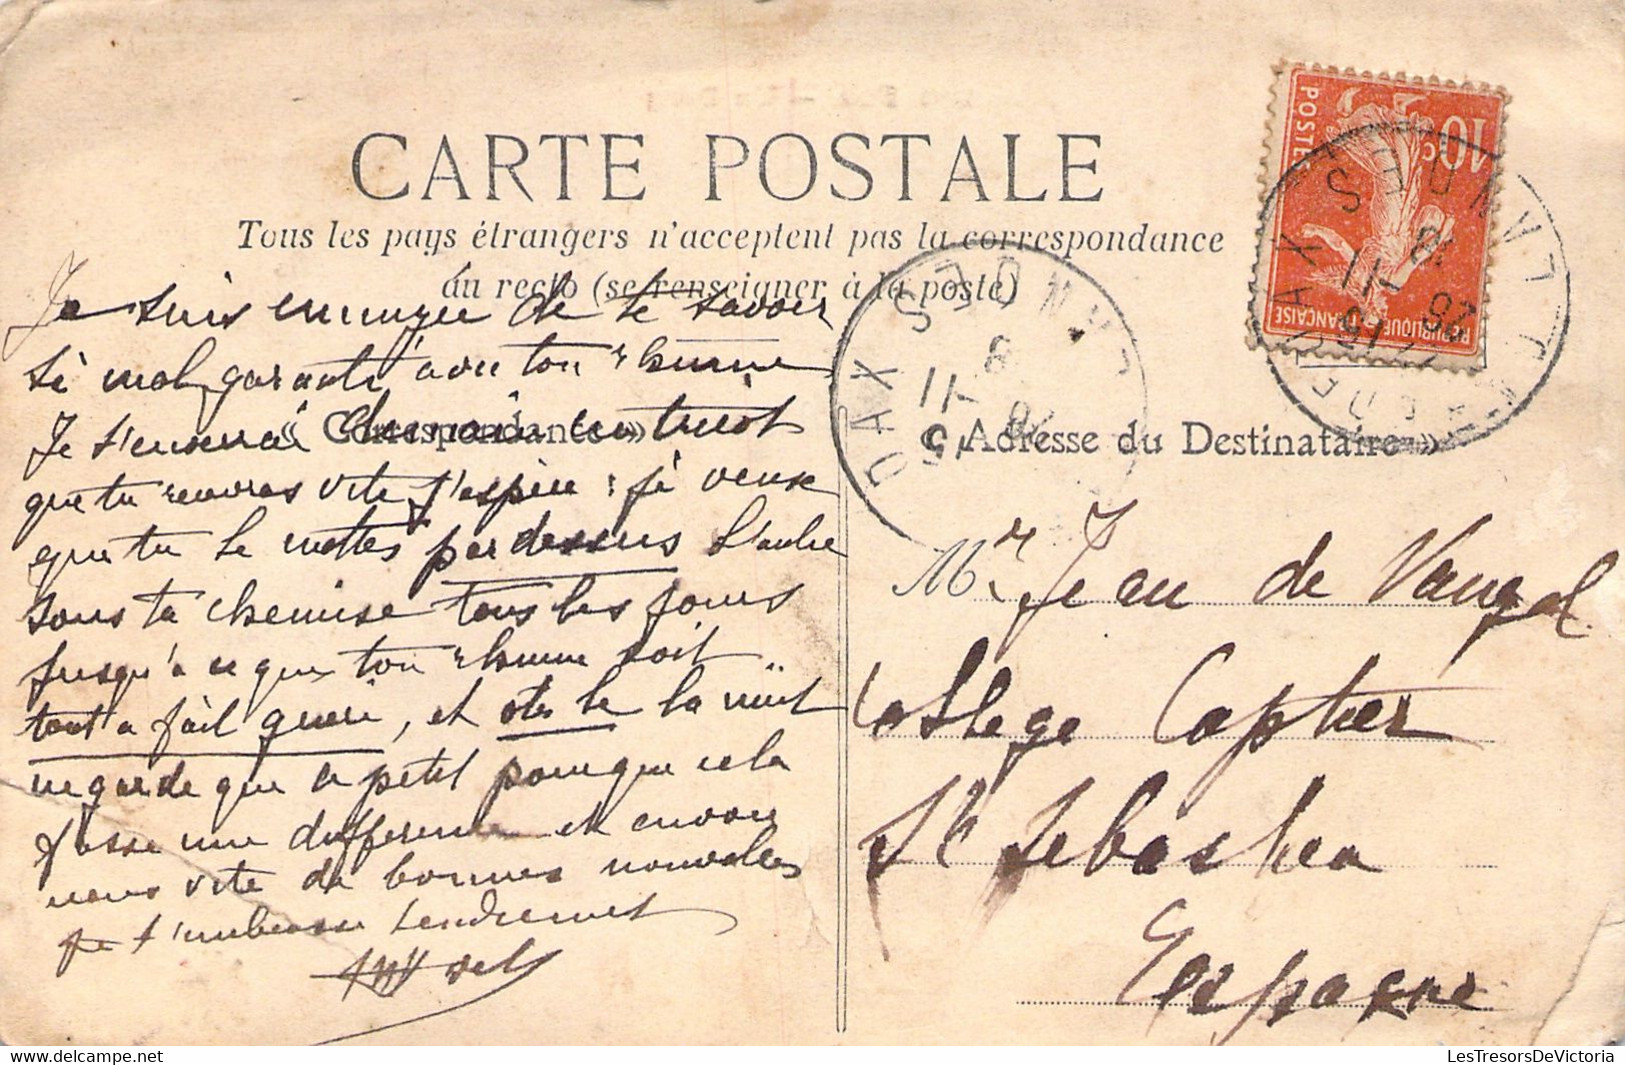 CARTE POSTALE
Tous les pays étrangers n'acceptent pas la correspondance
au recto (se renseigner à la poste)
10c
POSTES
REPUBLIQUE FRANÇAISE
DAX LANDES
11
DAX LANDES
18
26 -11
15
« Correspondance »
« Adresse du Destinataire »
Je suis ennuyée de te savoir
si mal garanti avec ton rhume
Je t'enverrai demain un tricot
que tu recevras vite j'espère : je veux
que tu le mettes par dessus l'autre
sous ta chemise tous les jours
jusqu'à ce que ton rhume soit
tout a fait guéri, et ôtes le la nuit
regarde que ce petit pour que cela
fasse une difference et envoie
nous vite de bonnes nouvelles
Je t'embrasse tendrement
Mr. Jean de Vaugel
Collège Captier
St Sebastien
Espagne
LesTresorsDeVictoria